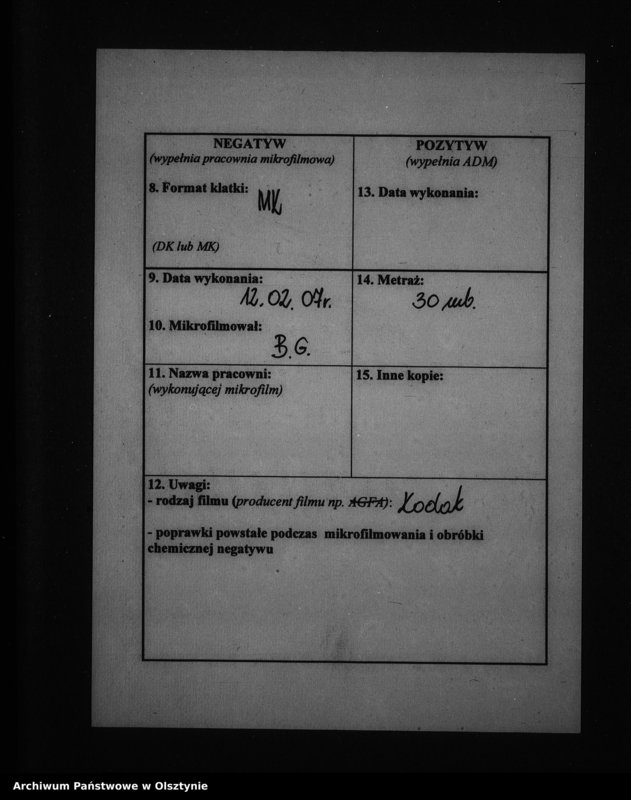 NEGATYW
(wypełnia pracownia mikrofilmowa)
8. Format klatki:
MK
(DK lub MK)
POZYTYW
(wypełnia ADM)
13. Data wykonania:
9. Data wykonania:
12.02.07r.
10. Mikrofilmował:
B.G.
14. Metraż:
30 mb.
11. Nazwa pracowni:
(wykonującej mikrofilm)
15. Inne kopie:
12. Uwagi:
- rodzaj filmu (producent filmu np. AGFA): Kodak
- poprawki powstałe podczas mikrofilmowania i obróbki
chemicznej negatywu
Archiwum Państwowe w Olsztynie